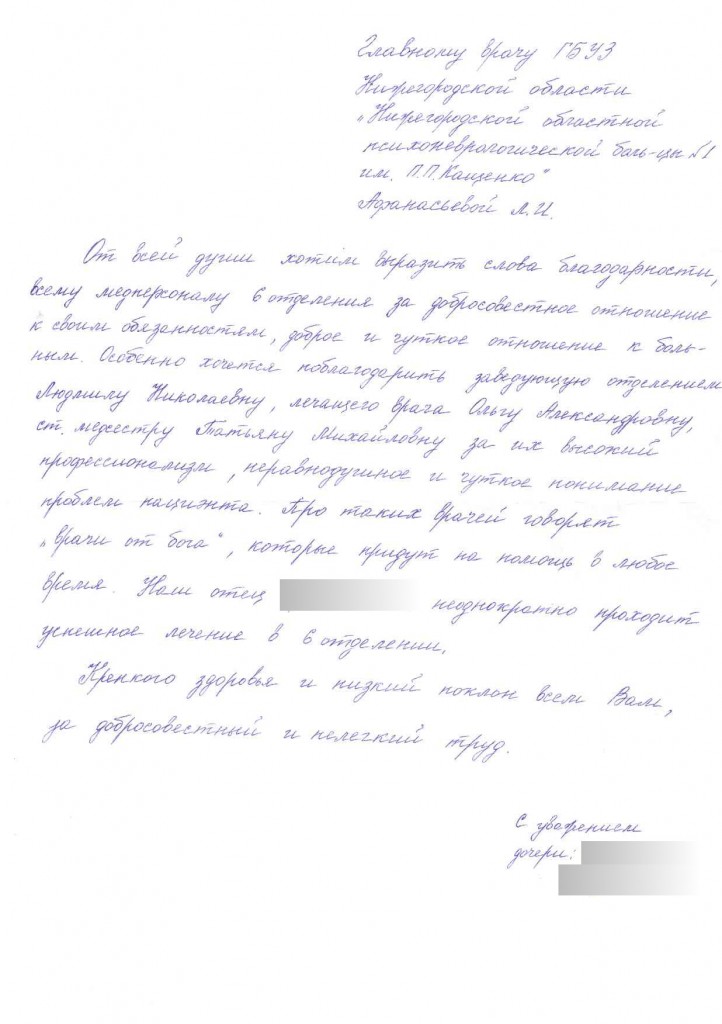 Главному врачу ГБУЗ
Нижегородской области
„Нижегородской областной
психоневрологической боль-цы №1
им. П.П.Кащенко"
Афанасьевой Л.И.
От всей души хотим выразить слова благодарности,
всему медперсоналу 6 отделения за добросовестное отношение
к своим обязанностям, доброе и чуткое отношение к боль-
ным. Особенно хочется поблагодарить заведующую отделением
Людмилу Николаевну, лечащего врача Ольгу Александровну,
ст. медсестру Татьяну Михайловну за их высокий
профессионализм, неравнодушное и чуткое понимание
проблем пациэнта. Про таких врачей говорят
„врачи от бога", которые придут на помощь в любое
время. Наш отец неоднократно проходит
успешное лечение в 6 отделении.
Крепкого здоровья и низкий поклон всем Вам,
за добросовестный и нелегкий труд.
С уважением
дочери: